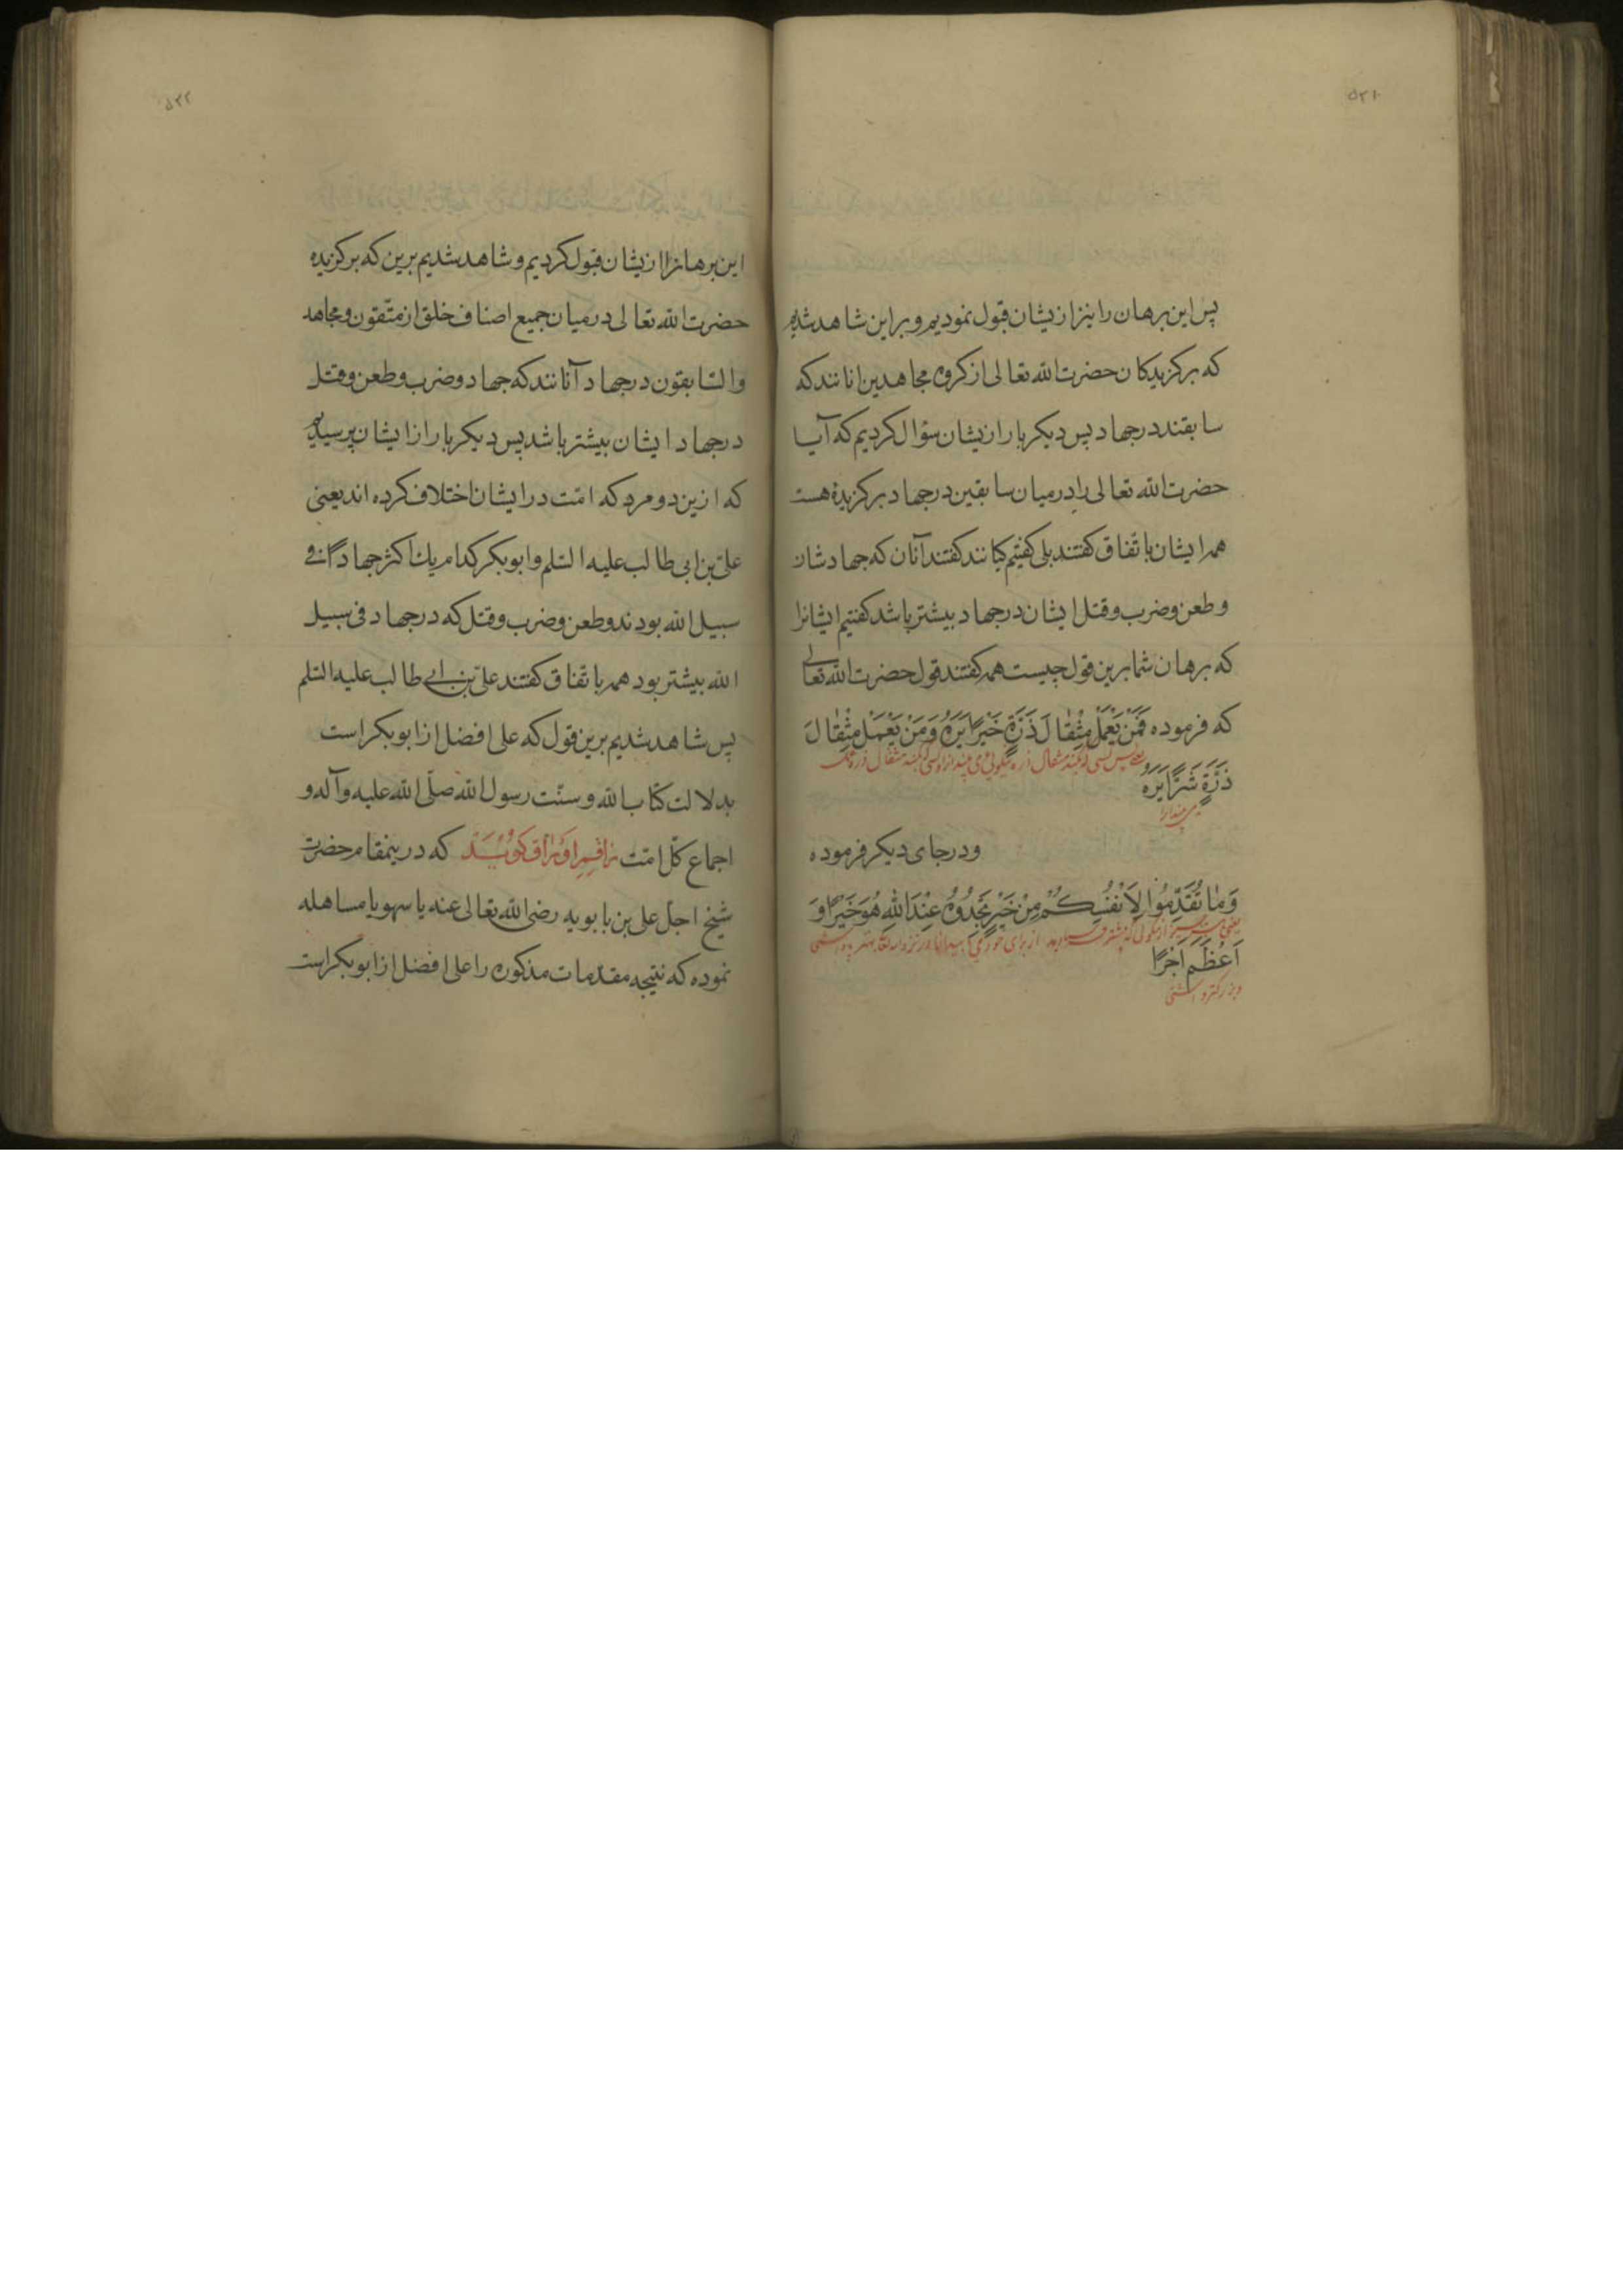 ۵۲۱
پس این برهان را نیز از یشان قبول نمودیم و بر این شاهد شدیم
که برکزیدکان حضرت الله تعالی از کروه مجاهدین انانند که
سابقند در جهاد پس دیکر بار از یشان سؤال کردیم که آیا
حضرت الله تعالی را در میان سابقین در جهاد برکزیدۀ هست
همه ایشان باتفاق کفتند بلی کفتیم کیانند کفتند آنان که جهادشان
و طعن و ضرب و قتل ایشان در جهاد بیشتر باشد کفتیم ایشانرا
که برهان شما برین قول چیست همه کفتند قول حضرت الله تعالی
که فرموده فَمَنْ يَعْمَلْ مِثْقالَ ذَرَّةٍ خَيْرًا يَرَهُ وَمَنْ يَعْمَلْ مِثْقالَ
یعنی پس کسی که کند مثقال ذره نیکوئی می بیند انرا و کسی که کند مثقال ذره
ذَرَّةٍ شَرًّا يَرَهُ
می بیند انرا
ودر جای دیکر فرموده
وَمٰا تُقَدِّمُوا لِاَنْفُسِكُمْ مِنْ خَيْرٍ تَجِدُوهُ عِنْدَ اللهِ هُوَ خَيْرًا وَ
یعنی از نیکوئی که از برای خود می یابید انرا در نزد الله تعالی بهتر
اَعْظَمَ اَجْرًا
و بزرکتر
۵۲۲
این برهانرا از یشان قبول کردیم و شاهد شدیم برین که برکزیده
حضرت الله تعالی در میان جمیع اصناف خلق از متّقون و مجاهد
والسّابقون در جهاد آنانند که جهاد و ضرب و طعن و قتل
در جهاد ایشان بیشتر باشد پس دیکر بار از ایشان پرسیدیم
که ازین دو مرد که امّت در ایشان اختلاف کرده اند یعنی
علیّ بن ابی طالب علیه السّلم و ابوبکر کدام یك اکثر جهادًا فی
سبیل الله بودند و طعن و ضرب و قتل که در جهاد فی سبیل
الله بیشتر بود همه باتفاق کفتند علیّ بن ابی طالب علیه السّلم
پس شاهد شدیم برین قول که علی افضل از ابوبکر است
بدلالت کتاب الله و سنّت رسول الله صلّی الله علیه وآله و
اجماع کلّ امّت راقم اوراق کوید که درینمقام حضرت
شیخ اجلّ علی بن بابویه رضی الله تعالی عنه یا سهو یا مساهله
نموده که نتیجه مقدمات مذکوره را علی افضل از ابوبکر است